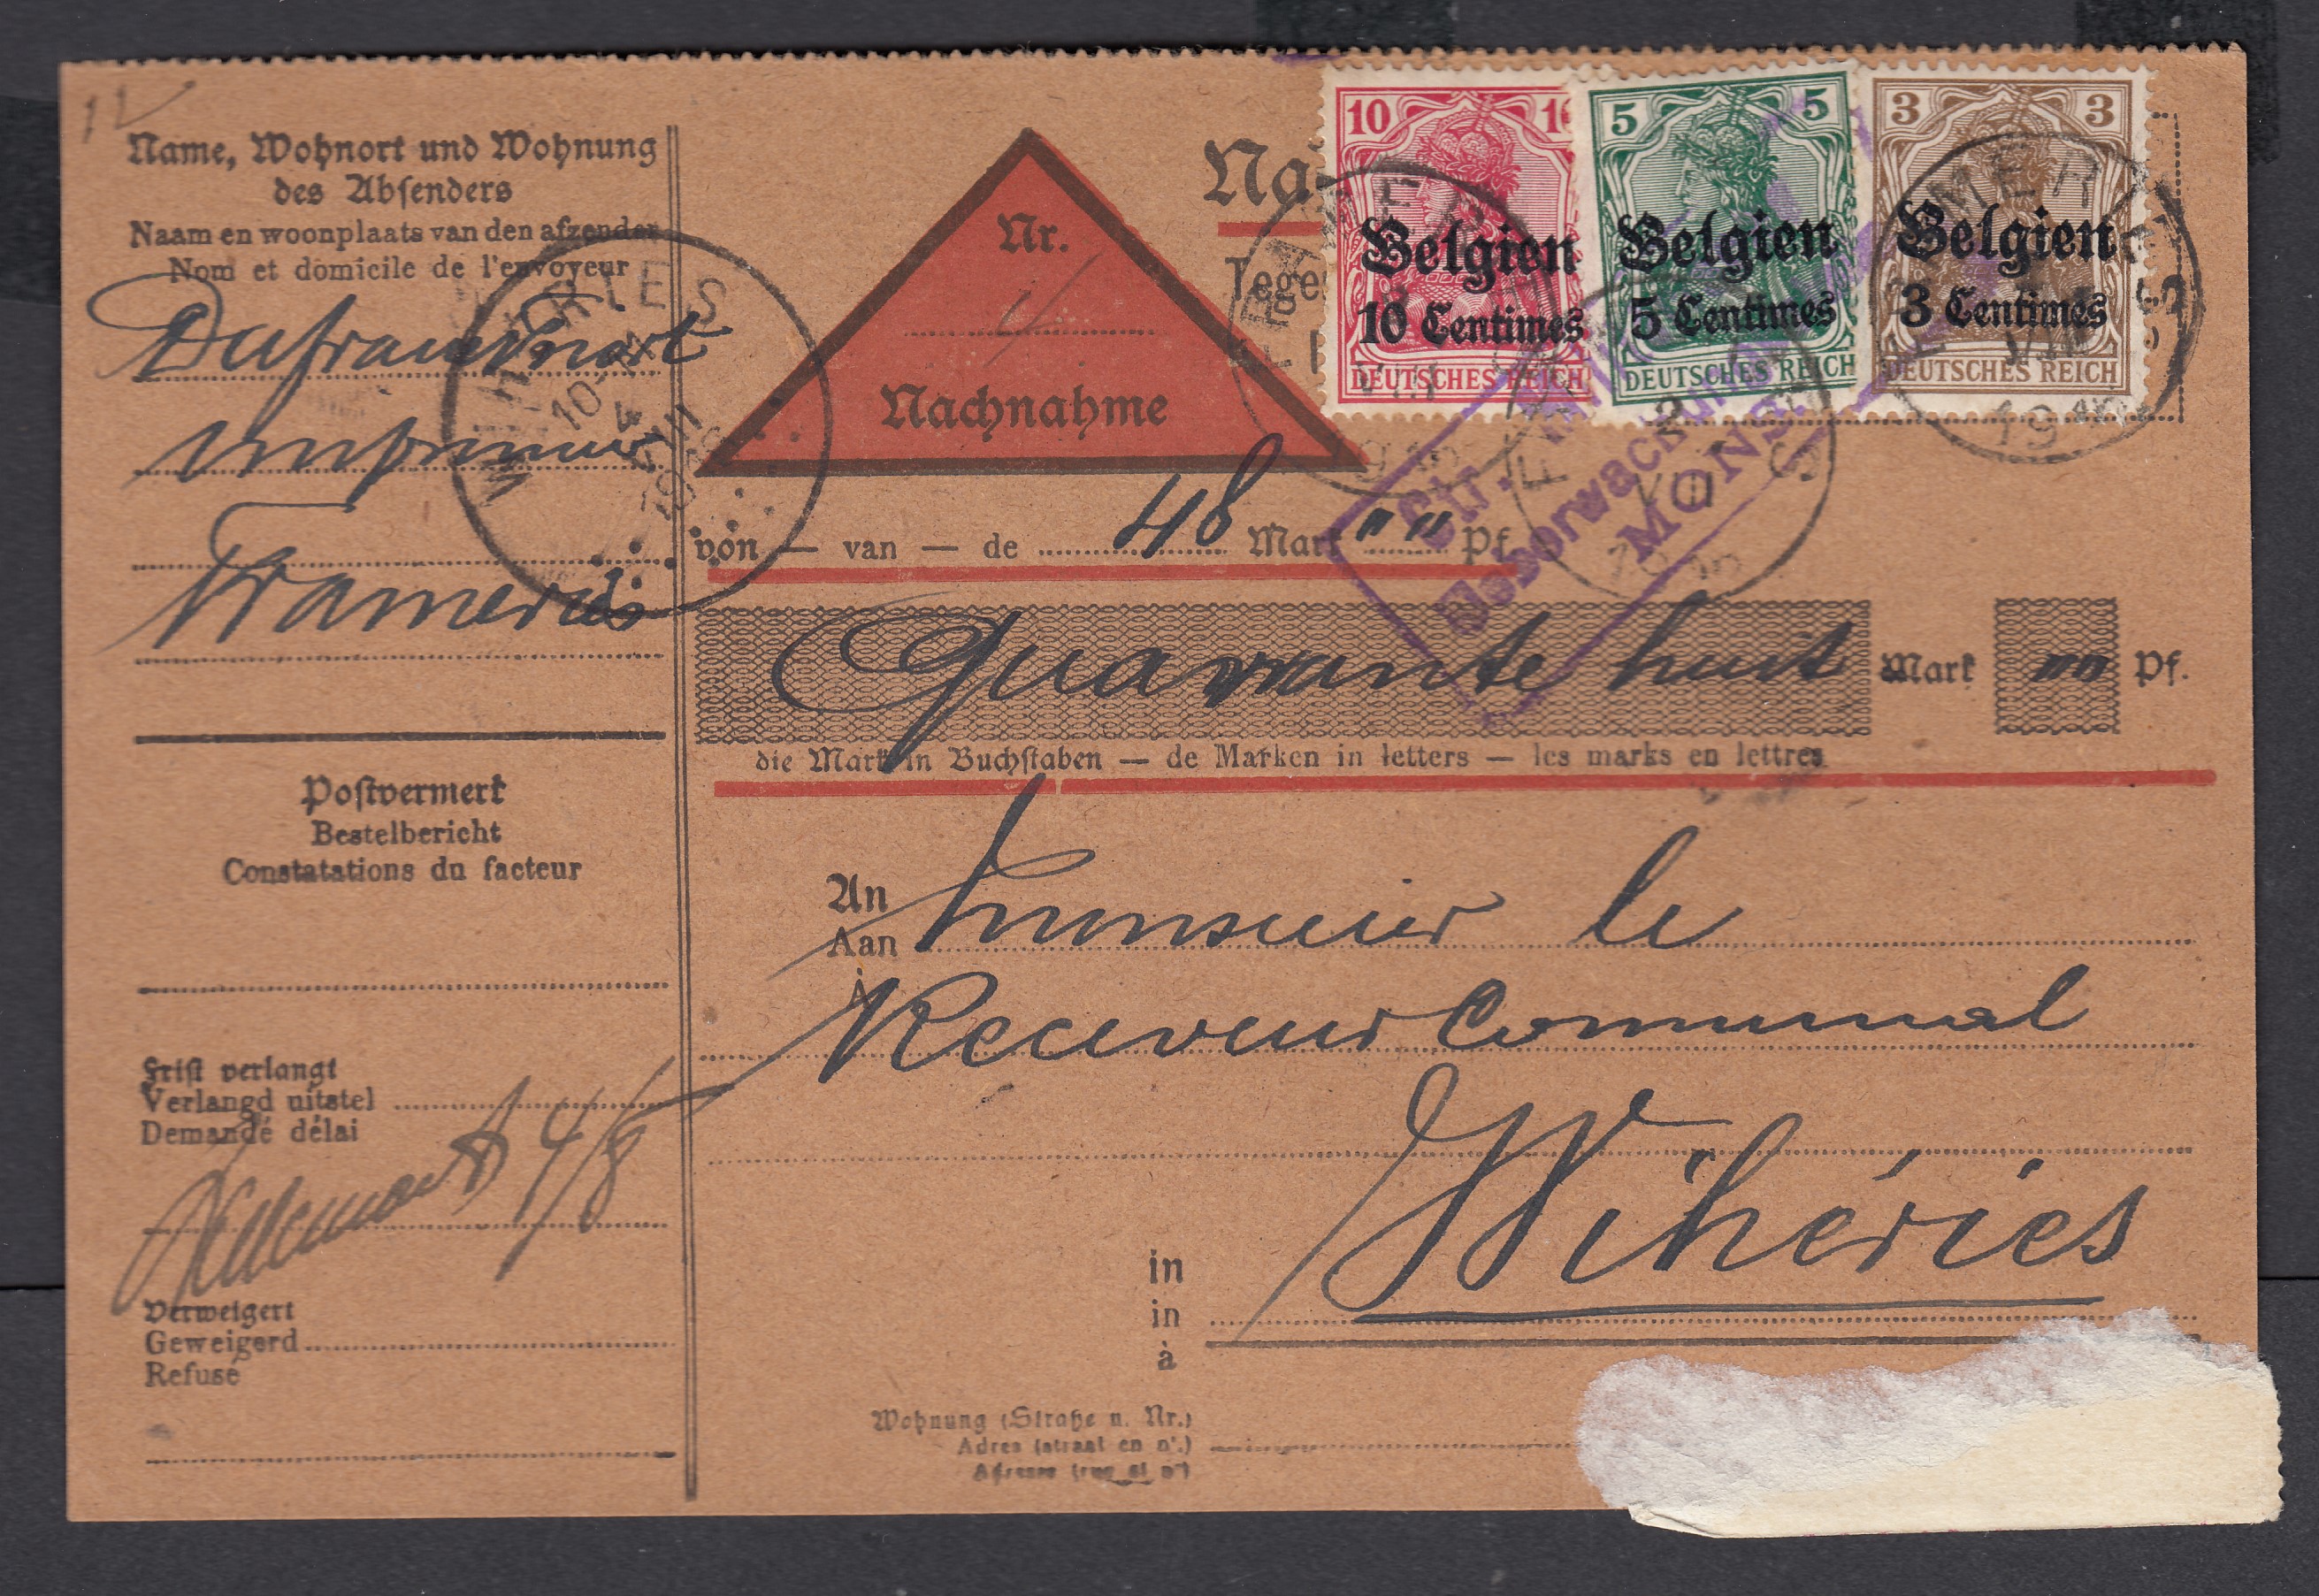 Name, Wohnort und Wohnung
des Absenders
Naam en woonplaats van den afzender
Nom et domicile de l'envoyeur
Dufrane
Frameries
Postvermerk
Bestelbericht
Constatations du facteur
Frist verlangt
Verlangd uitstel
Demandé délai
4/8
Verweigert
Geweigerd
Refusé
WIHERIES
10-11
4
VIII
Nr.
Nachnahme
Na
Tege
10
Belgien
10 Centimes
DEUTSCHES REICH
5 5
Belgien
5 Centimes
DEUTSCHES REICH
3 3
Belgien
3 Centimes
DEUTSCHES REICH
Ueberwachung
MONS
von — van — de 48 Mark "" Pf.
Quarante huit Mark "" Pf.
die Mark in Buchstaben — de Marken in letters — les marks en lettres
An
Aan
À
Monsieur le
Receveur Communal
in
in
à
Wihéries
Wohnung (Straße u. Nr.)
Adres (straat en nr.)
Adresse (rue et no)